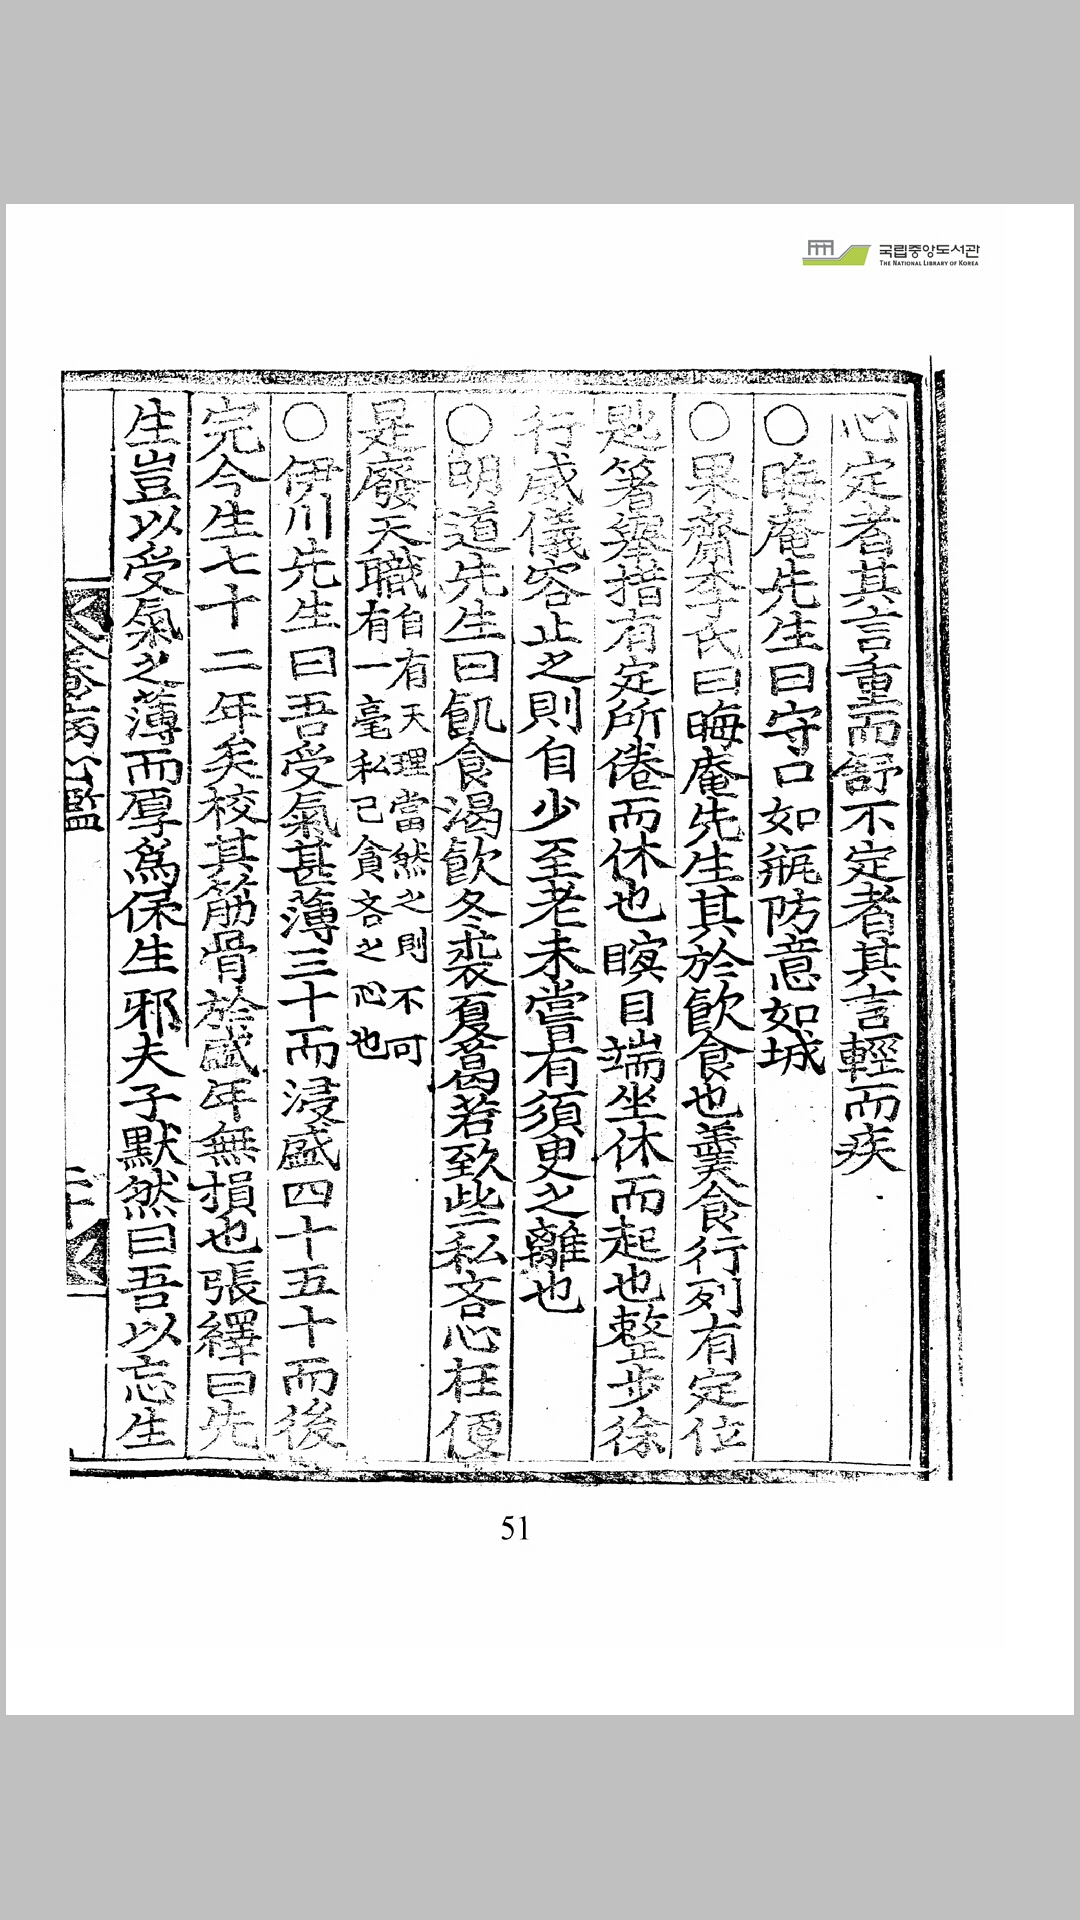 국립중앙도서관
THE NATIONAL LIBRARY OF KOREA
心定者其言重而舒不定者其言輕而疾
○晦庵先生曰守口如瓶防意如城
○果齋李氏曰晦庵先生其於飮食也羹食行列有定位
匙箸擧措有定所倦而休也瞑目端坐休而起也整步徐
行威儀容止之則自少至老未嘗有須臾之離也
○明道先生曰飢食渴飮冬裘夏葛若致些私吝心在便
是廢天職自有天理當然之則不可有一毫私己貪吝之心也
○伊川先生曰吾受氣甚薄三十而浸盛四十五十而後
完今生七十二年矣校其筋骨於盛年無損也張繹曰先
生豈以受氣之薄而厚爲保生邪夫子默然曰吾以忘生
51